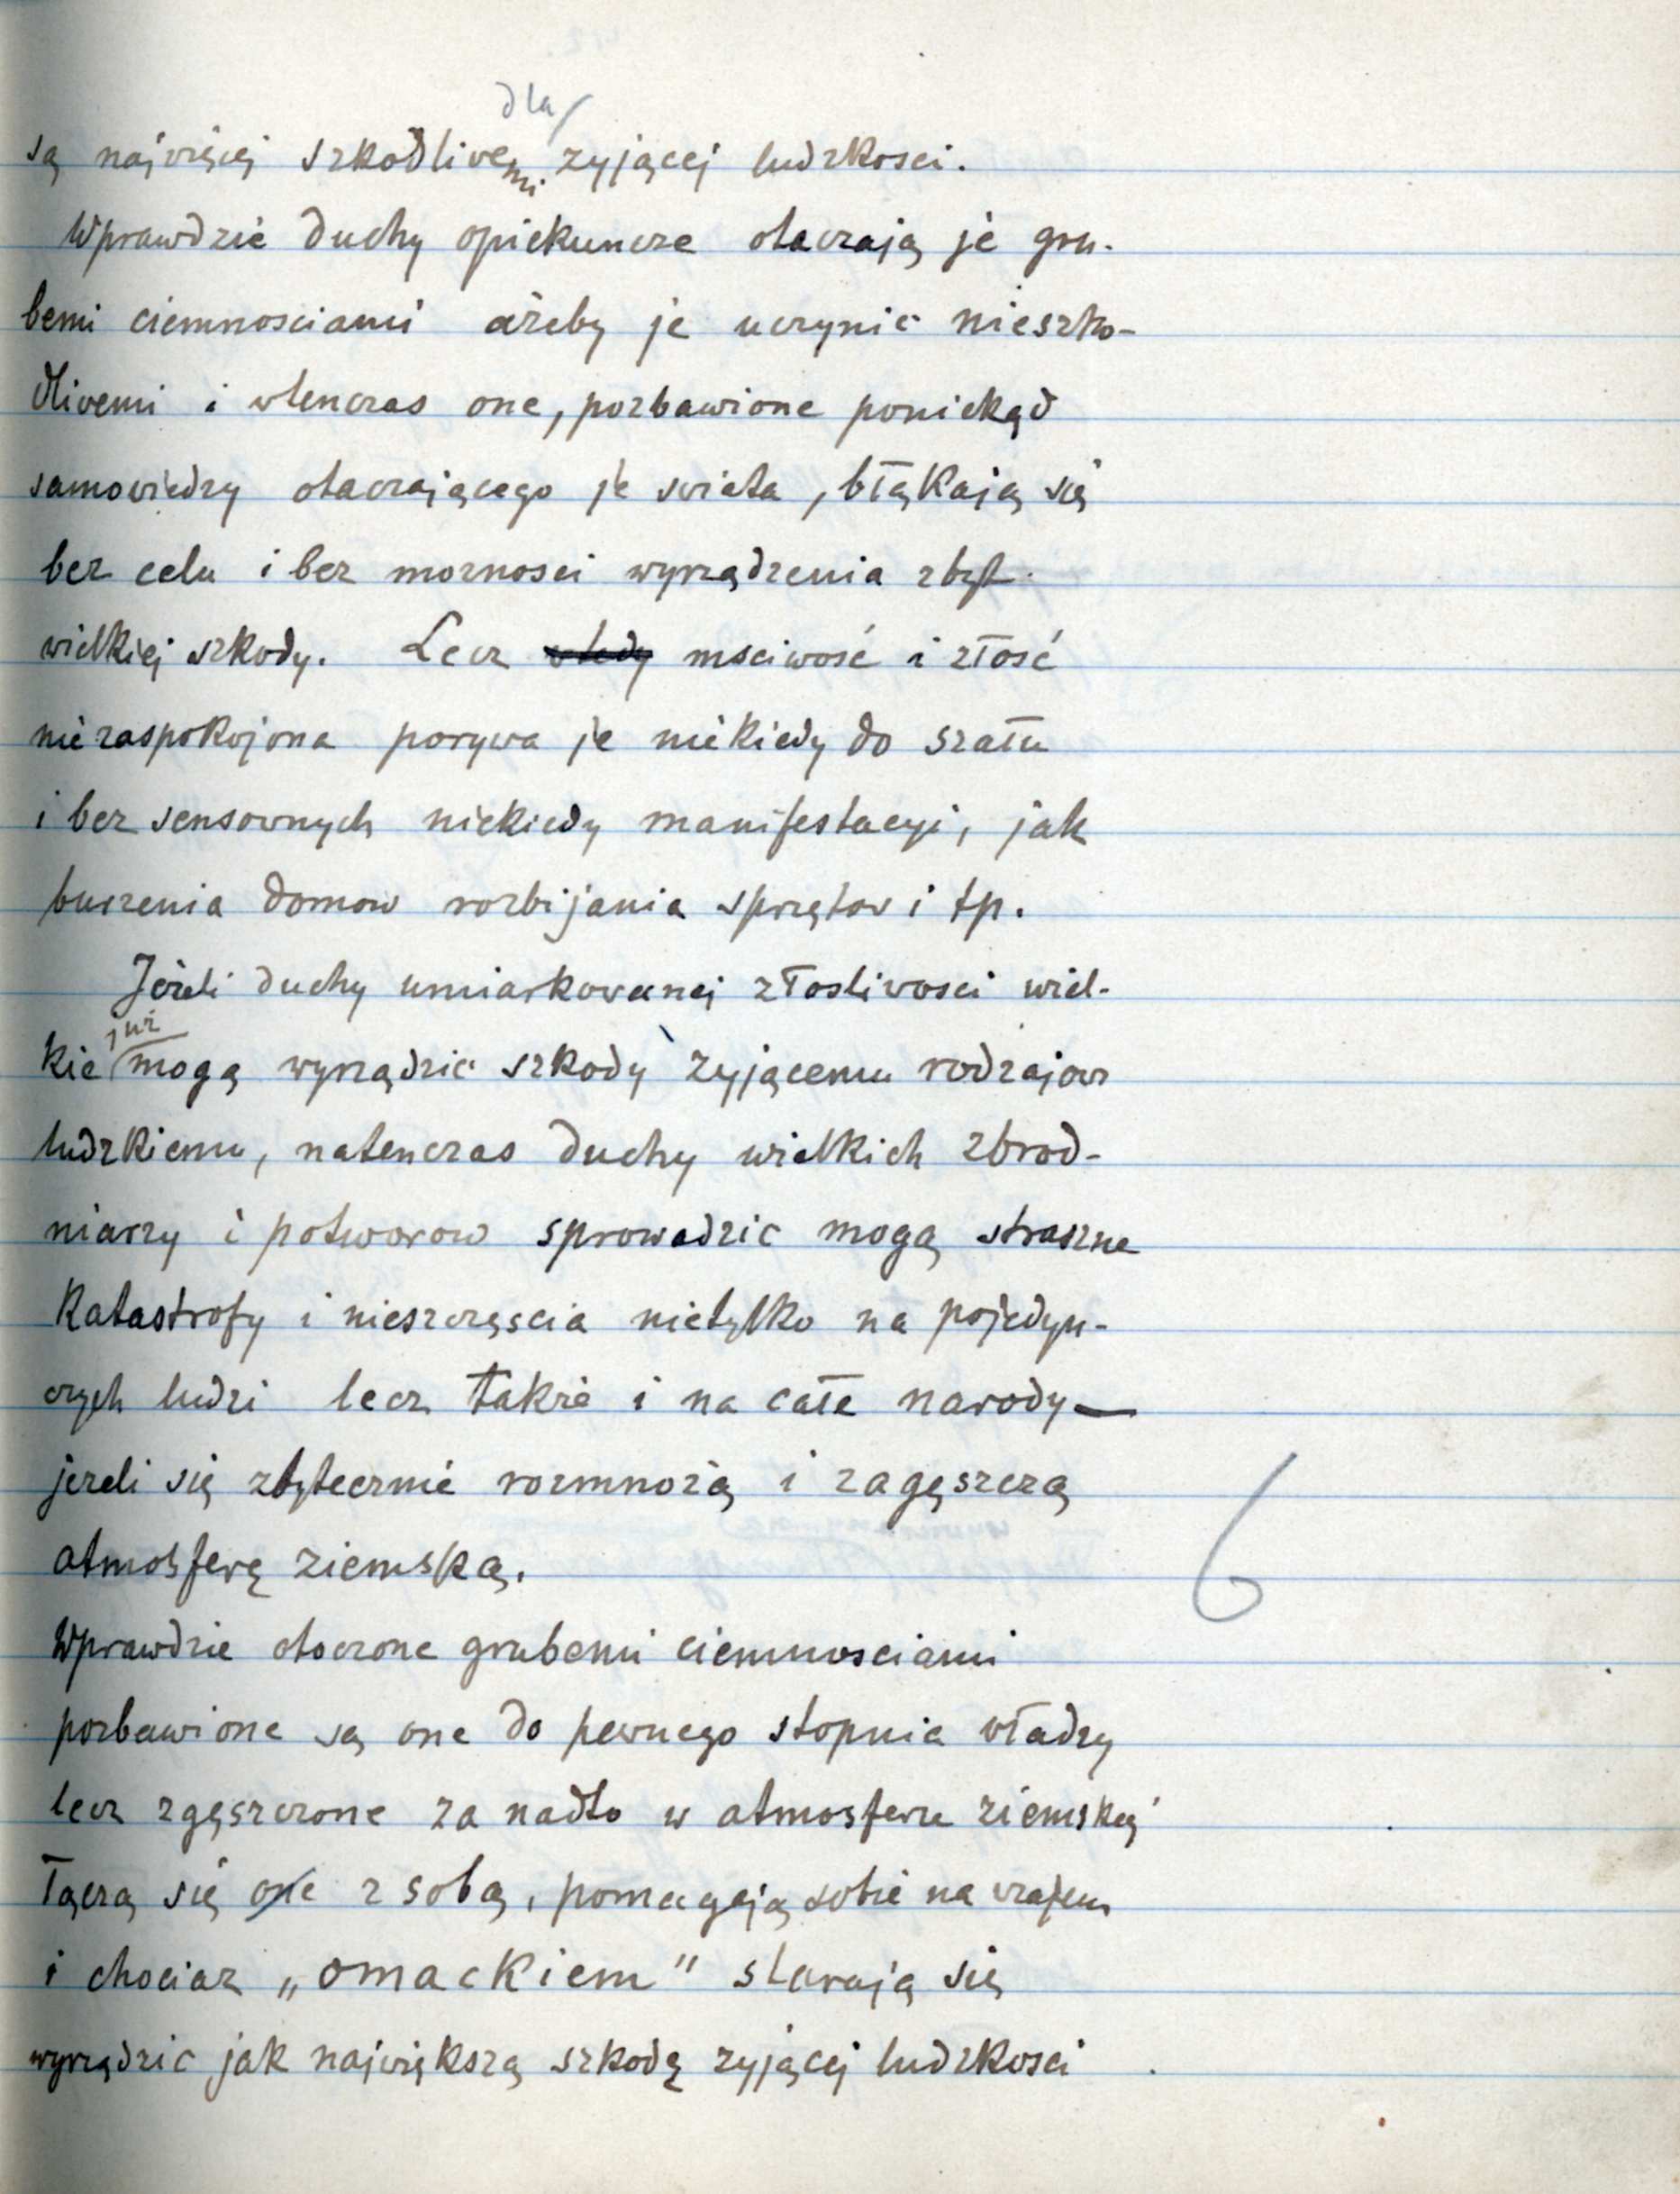 dla
są najvięcej szkodlivemi zyjącej ludzkosci.
Wprawdzie duchy opiekuncze otaczają je gru-
bemi ciemnosciami ażeby je uczynic nieszko-
dlivemi i vtenczas one, pozbawione poniekąd
samoviedzy otaczającego je svieta, błąkają się
bez celu i bez moznosci wyrządzenia zbyt
wielkiej szkody. Lecz vtedy msciwość i złość
niezaspokojona porywa je niekiedy do szału
i bez sensovnych niekiedy manifestacyi, jak
burzenia domow rozbijania sprzętov i tp.
Jeżeli duchy umiarkovanej złoslivosci wiel-
już
kie mogą wyrządzic szkody zyjącemu rodzajowi
ludzkiemu, natenczas duchy wielkich zbrod-
niarzy i potworow sprowadzic mogą straszne
Katastrofy i nieszczęscia nietylko na pojedyn-
czych ludzi lecz także i na całe narody—
jezeli się zbytecznie rozmnożą i zagęszczą
atmosferę ziemską.
6
Wprawdzie otoczone grubemi ciemnosciami
pozbawione są one do pevnego stopnia vładzy
lecz zgęszczone za nadto w atmosferze ziemskiej
łączą się one z sobą, pomagają sobie na vzajem
i chociaz „omackiem" starają się
wyrządzic jak najviększą szkodę zyjącej ludzkosci